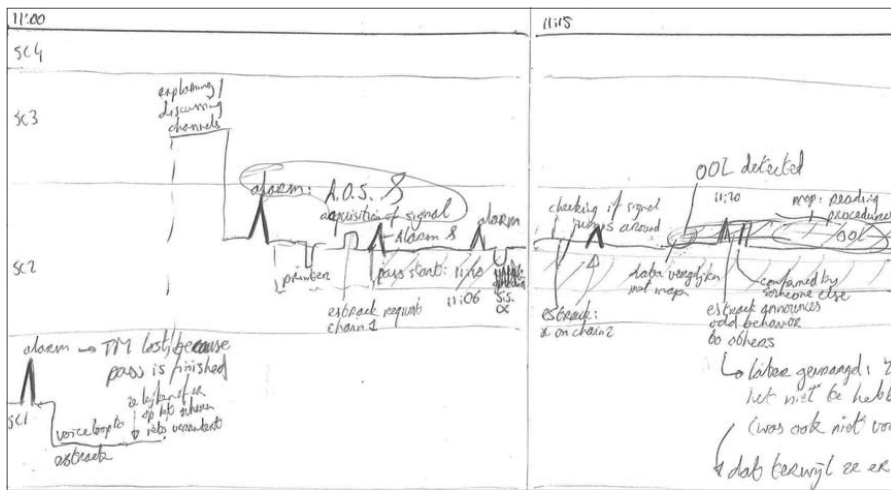 11:00
11:15
SC4
SC3
SC2
SC1
explaining/
discussing
channels
alarm: A.O.S.
acquisition of signal
Alarm 8
alarm
printer
pass start: 11:10
11:06
estrack request
chain 1
S.S.
alarm → TM lost, because
pass is finished
ze kijken of er
op het scherm
iets verandert
voiceloop to
estrack
OOL detected
checking if signal
turns around
11:20
mop: reading
procedures
OOL
data vergelijken
met mop
confirmed by
someone else
estrack:
on chain 2
estrack announces
odd behavior
to others
later gevraagd:
het niet te hebb
(was ook niet
dat terwijl ze er